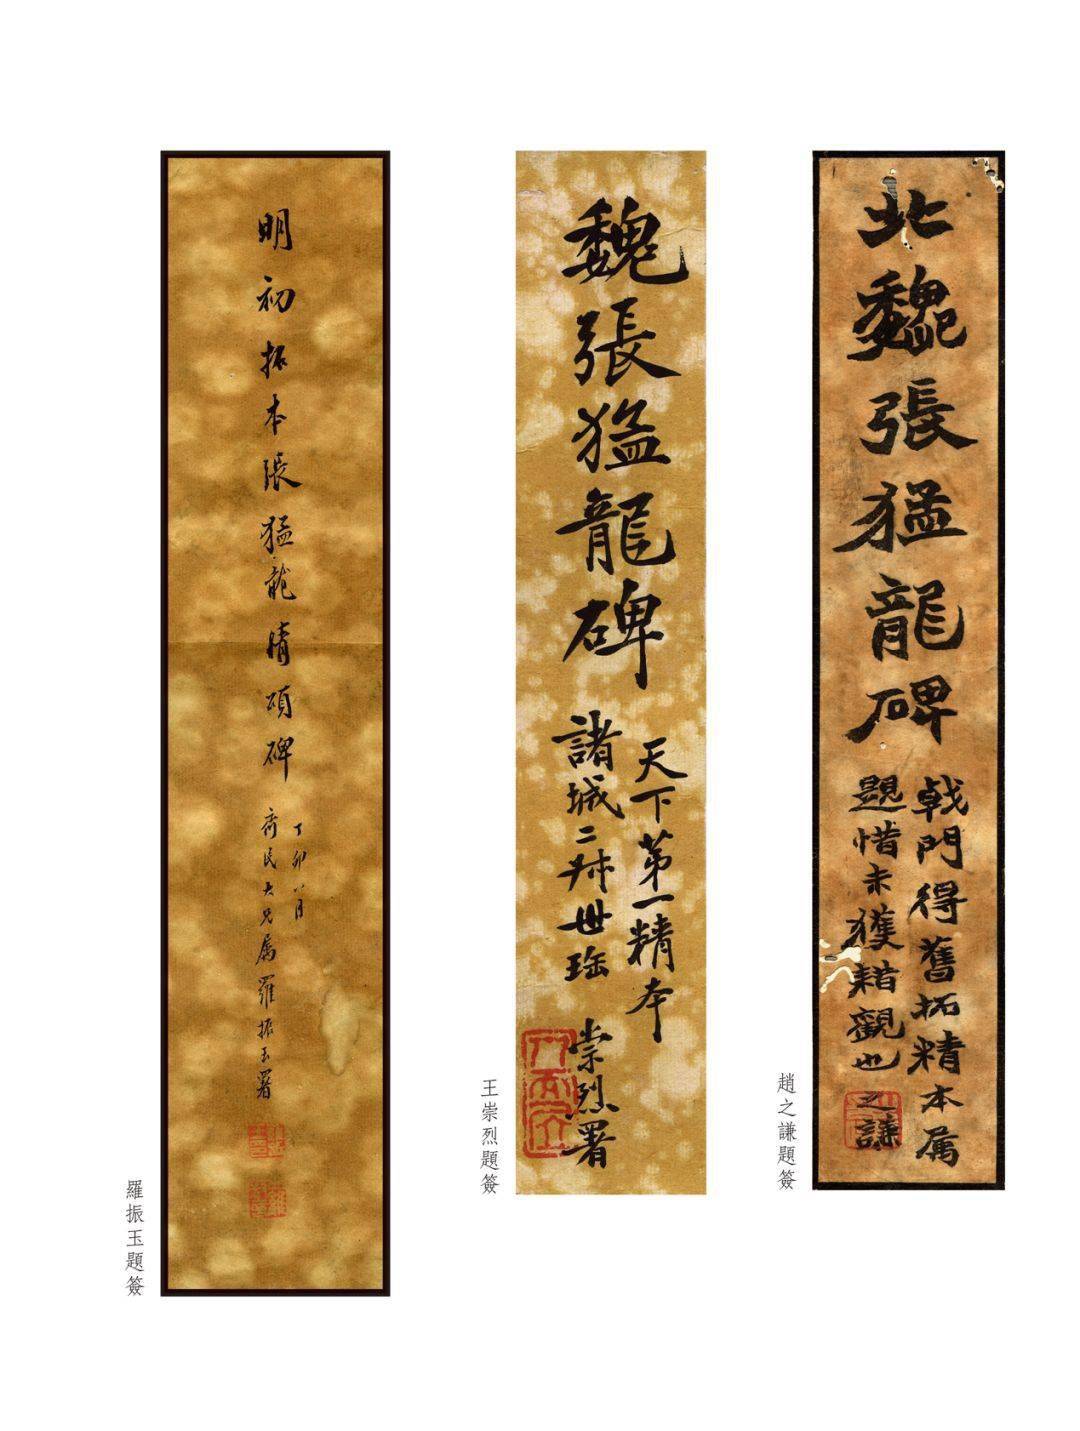 北魏張猛龍碑
戟門得舊拓精本属
題惜未獲藉觀也之謙
趙之謙題簽
魏張猛龍碑
天下第一精本
諸城二<br>世珤 崇烈署
王崇烈題簽
明初拓本張猛龍清頌碑
丁卯八月
齊民大兄属羅振玉署
羅振玉題簽